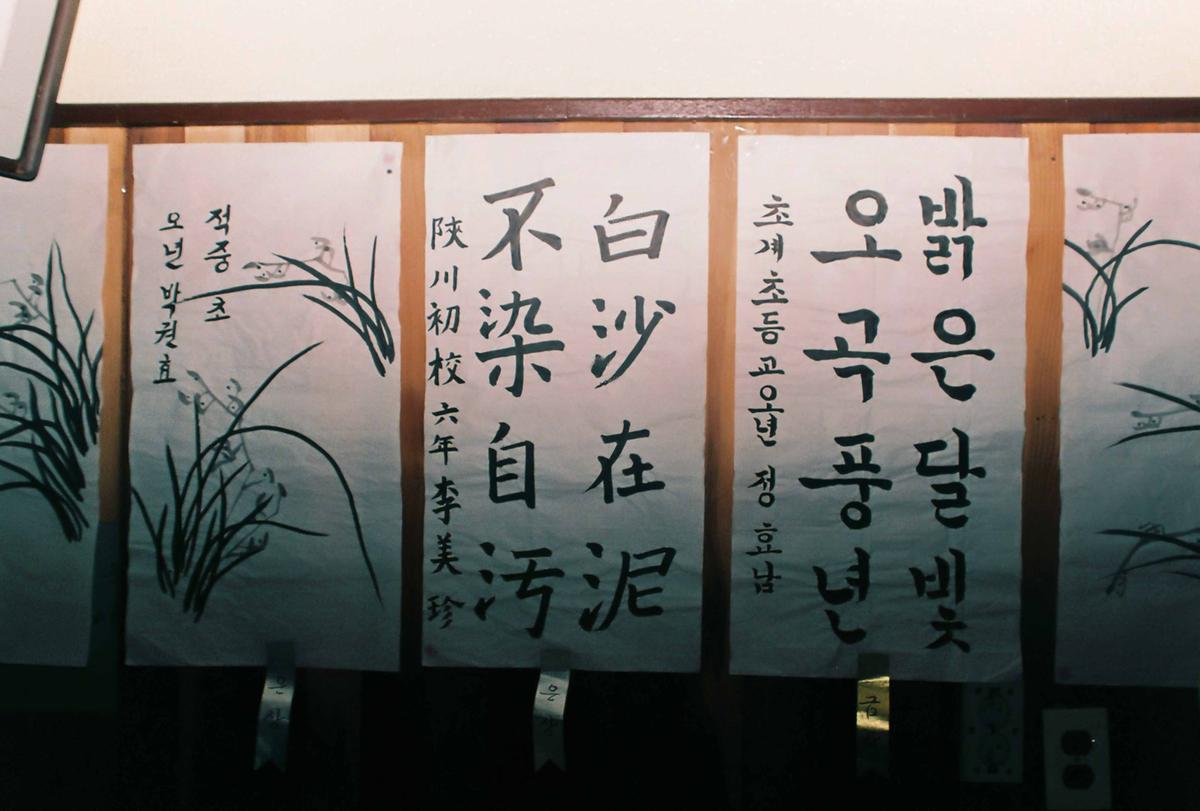 밝은달빛
오곡풍년
초계초등교오년 정효남
白沙在泥
不染自汚
陜川初校六年李美珍
적중초
오년 박권효
은상
은상
금